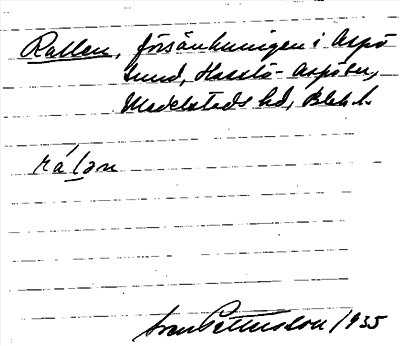 Rallen, försänkningen i Aspö
sund, Hasslö- Aspöar,
Medelsteds hd, Blek. l.
rá lən
Sven Pettersson 1935